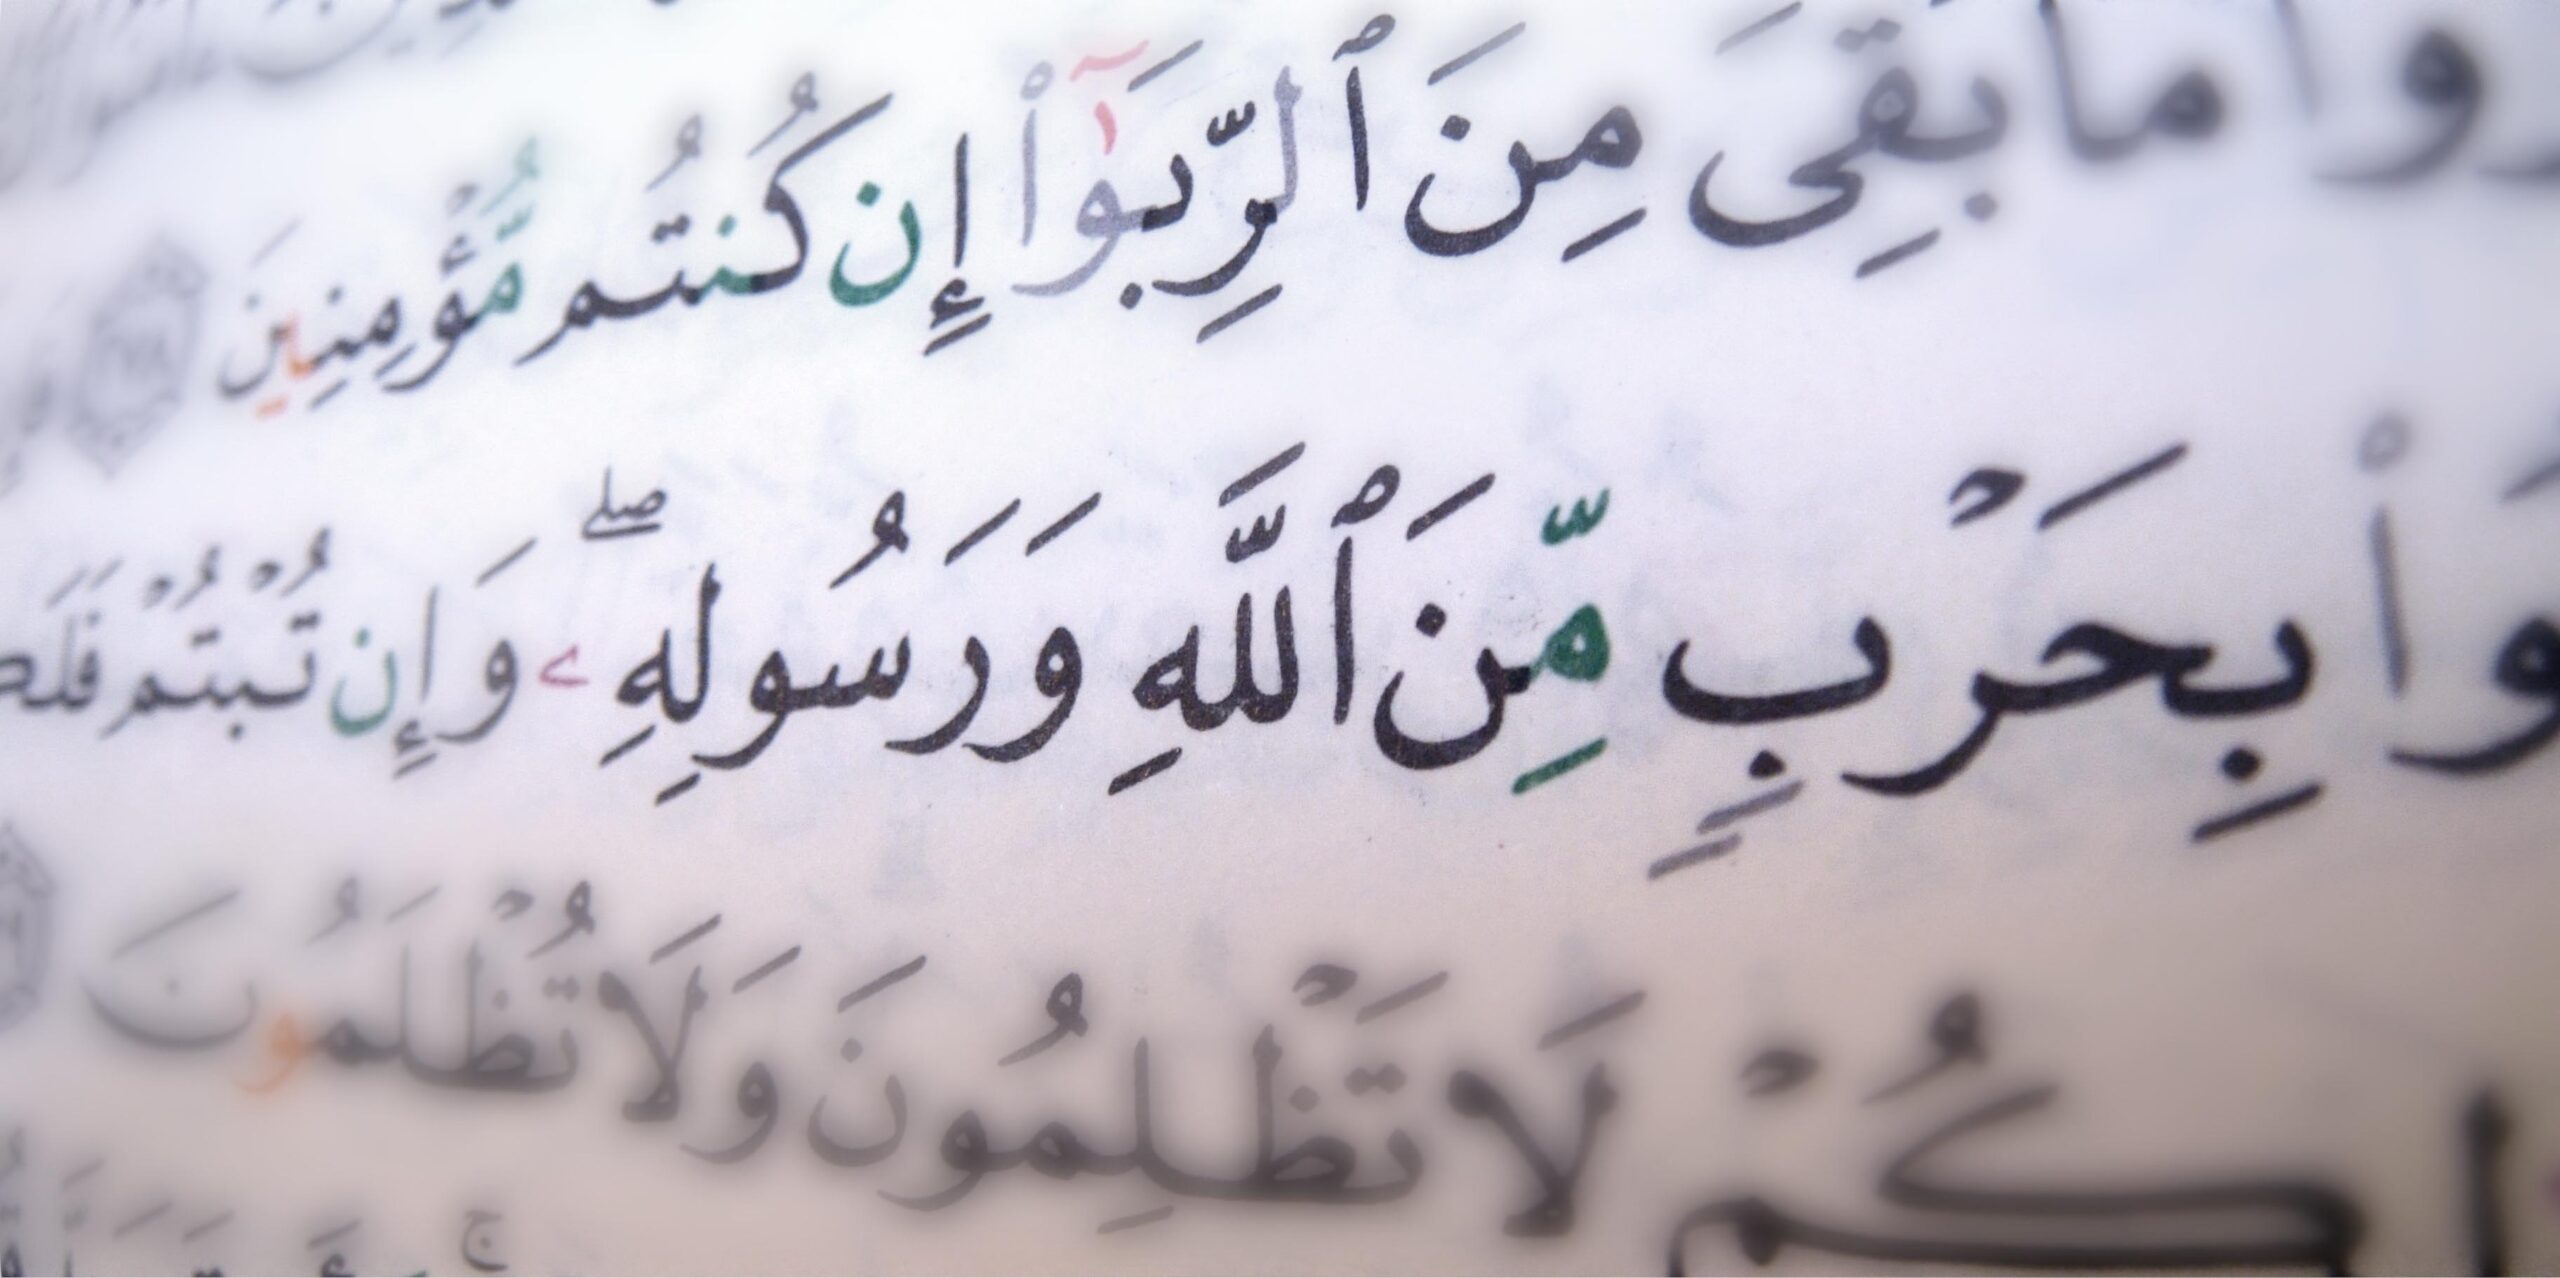 وا۟ مَا بَقِىَ مِنَ ٱلرِّبَوٰٓا۟ إِن كُنتُم مُّؤْمِنِينَ ٢٧٨
وا۟ بِحَرْبٍ مِّنَ ٱللَّهِ وَرَسُولِهِۦ ۖ وَإِن تُبْتُمْ فَلَكُ
لِكُمْ لَا تَظْلِمُونَ وَلَا تُظْلَمُونَ